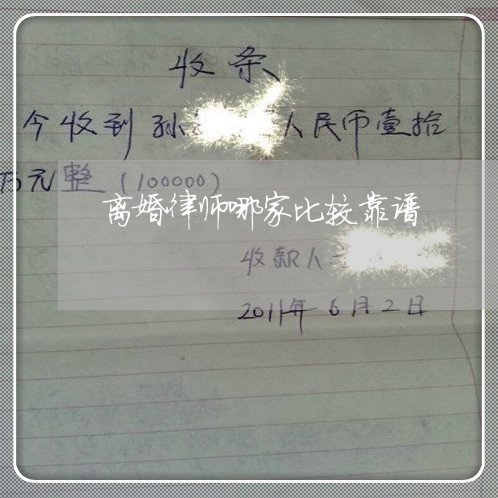 收条
今收到孙 人民币壹拾
万元整(100000)
离婚律师哪家比较靠谱
收款人
2011年6月2日